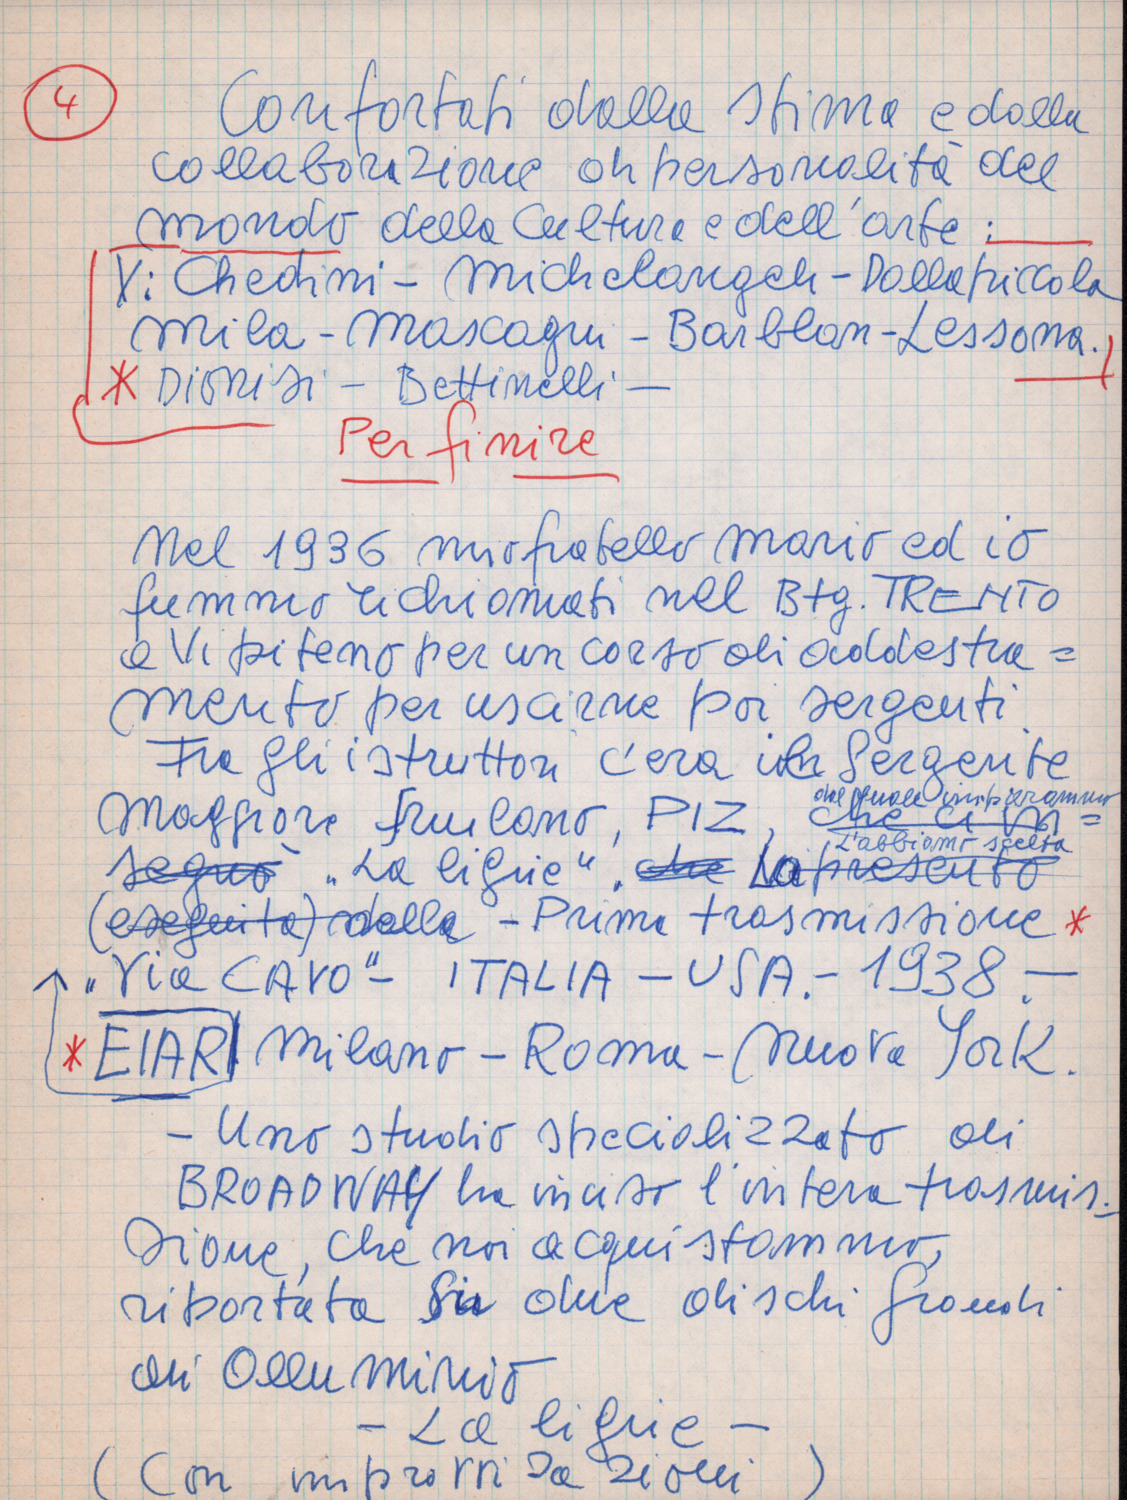 4
Confortati dalla stima e dalla
collaborazione di personalità del
mondo della Cultura e dell'arte:
V: Ghedini - Michelangeli - Dallapiccola
Mila - Mascagni - Barblan - Lessona.
* Dionisi - Bettinelli -
Per finire
Nel 1936 mio fratello Mario ed io
fummo richiamati nel Btg. TRENTO
a Vipiteno per un corso di addestra=
mento per uscirne poi sergenti
Fra gli istruttori c'era un Sergente
dal quale imparammo
Maggiore friulano, PIZ, che ci in=
L'abbiamo scelta
segnò "La ligrie". che La presentò
(eseguita) della - Prima trasmissione *
"Via CAVO" - ITALIA - USA. - 1938. -
* EIAR Milano - Roma - Nuova York.
- Uno studio specializzato di
BROADWAY ha inciso l'intera trasmis=
sione, che noi acquistammo,
riportata su due dischi grandi
di Alluminio
- La ligrie -
(Con improvvisazioni)